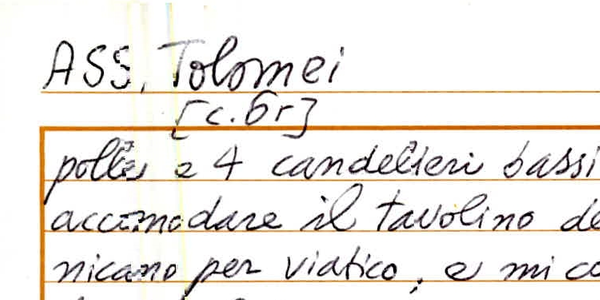 ASS. Tolomei
[c.6r]
polle e 4 candelieri bassi
accomodare il tavolino de
nicano per viatico, e mi co